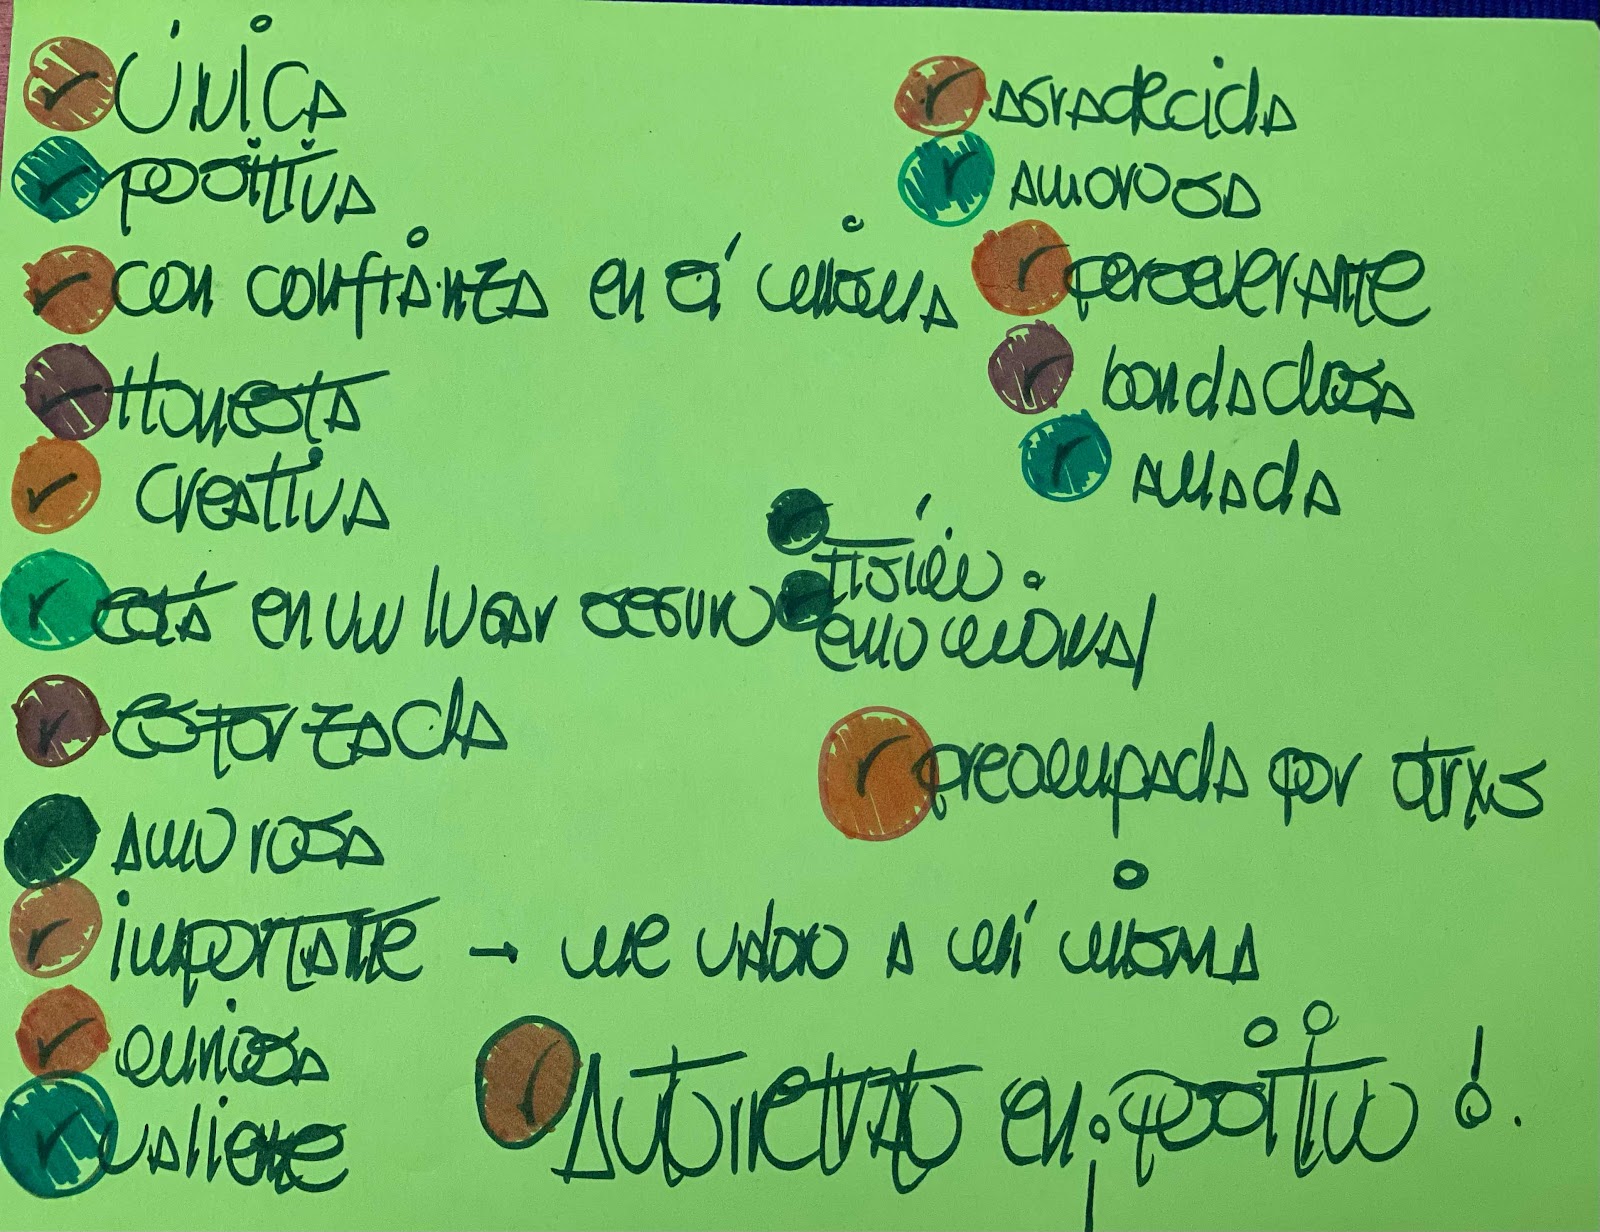 única
positiva
con confianza en sí misma
Honesta
creativa
está en un lugar seguro
esforzada
amorosa
importante → me valoro a mí misma
curiosa
valiente
agradecida
amorosa
perseverante
bondadosa
amada
físico
emocional
preocupada por otrxs
Autorretrato en ¡positivo!.